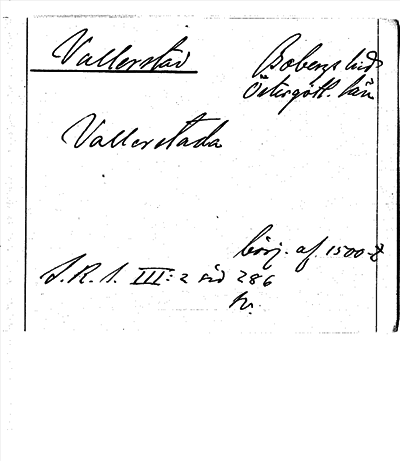 Vallerstad
Bobergs hd
Östergötl. län
Vallerstada
börj. af 1500-t
S.R.S. III:2 sid 286